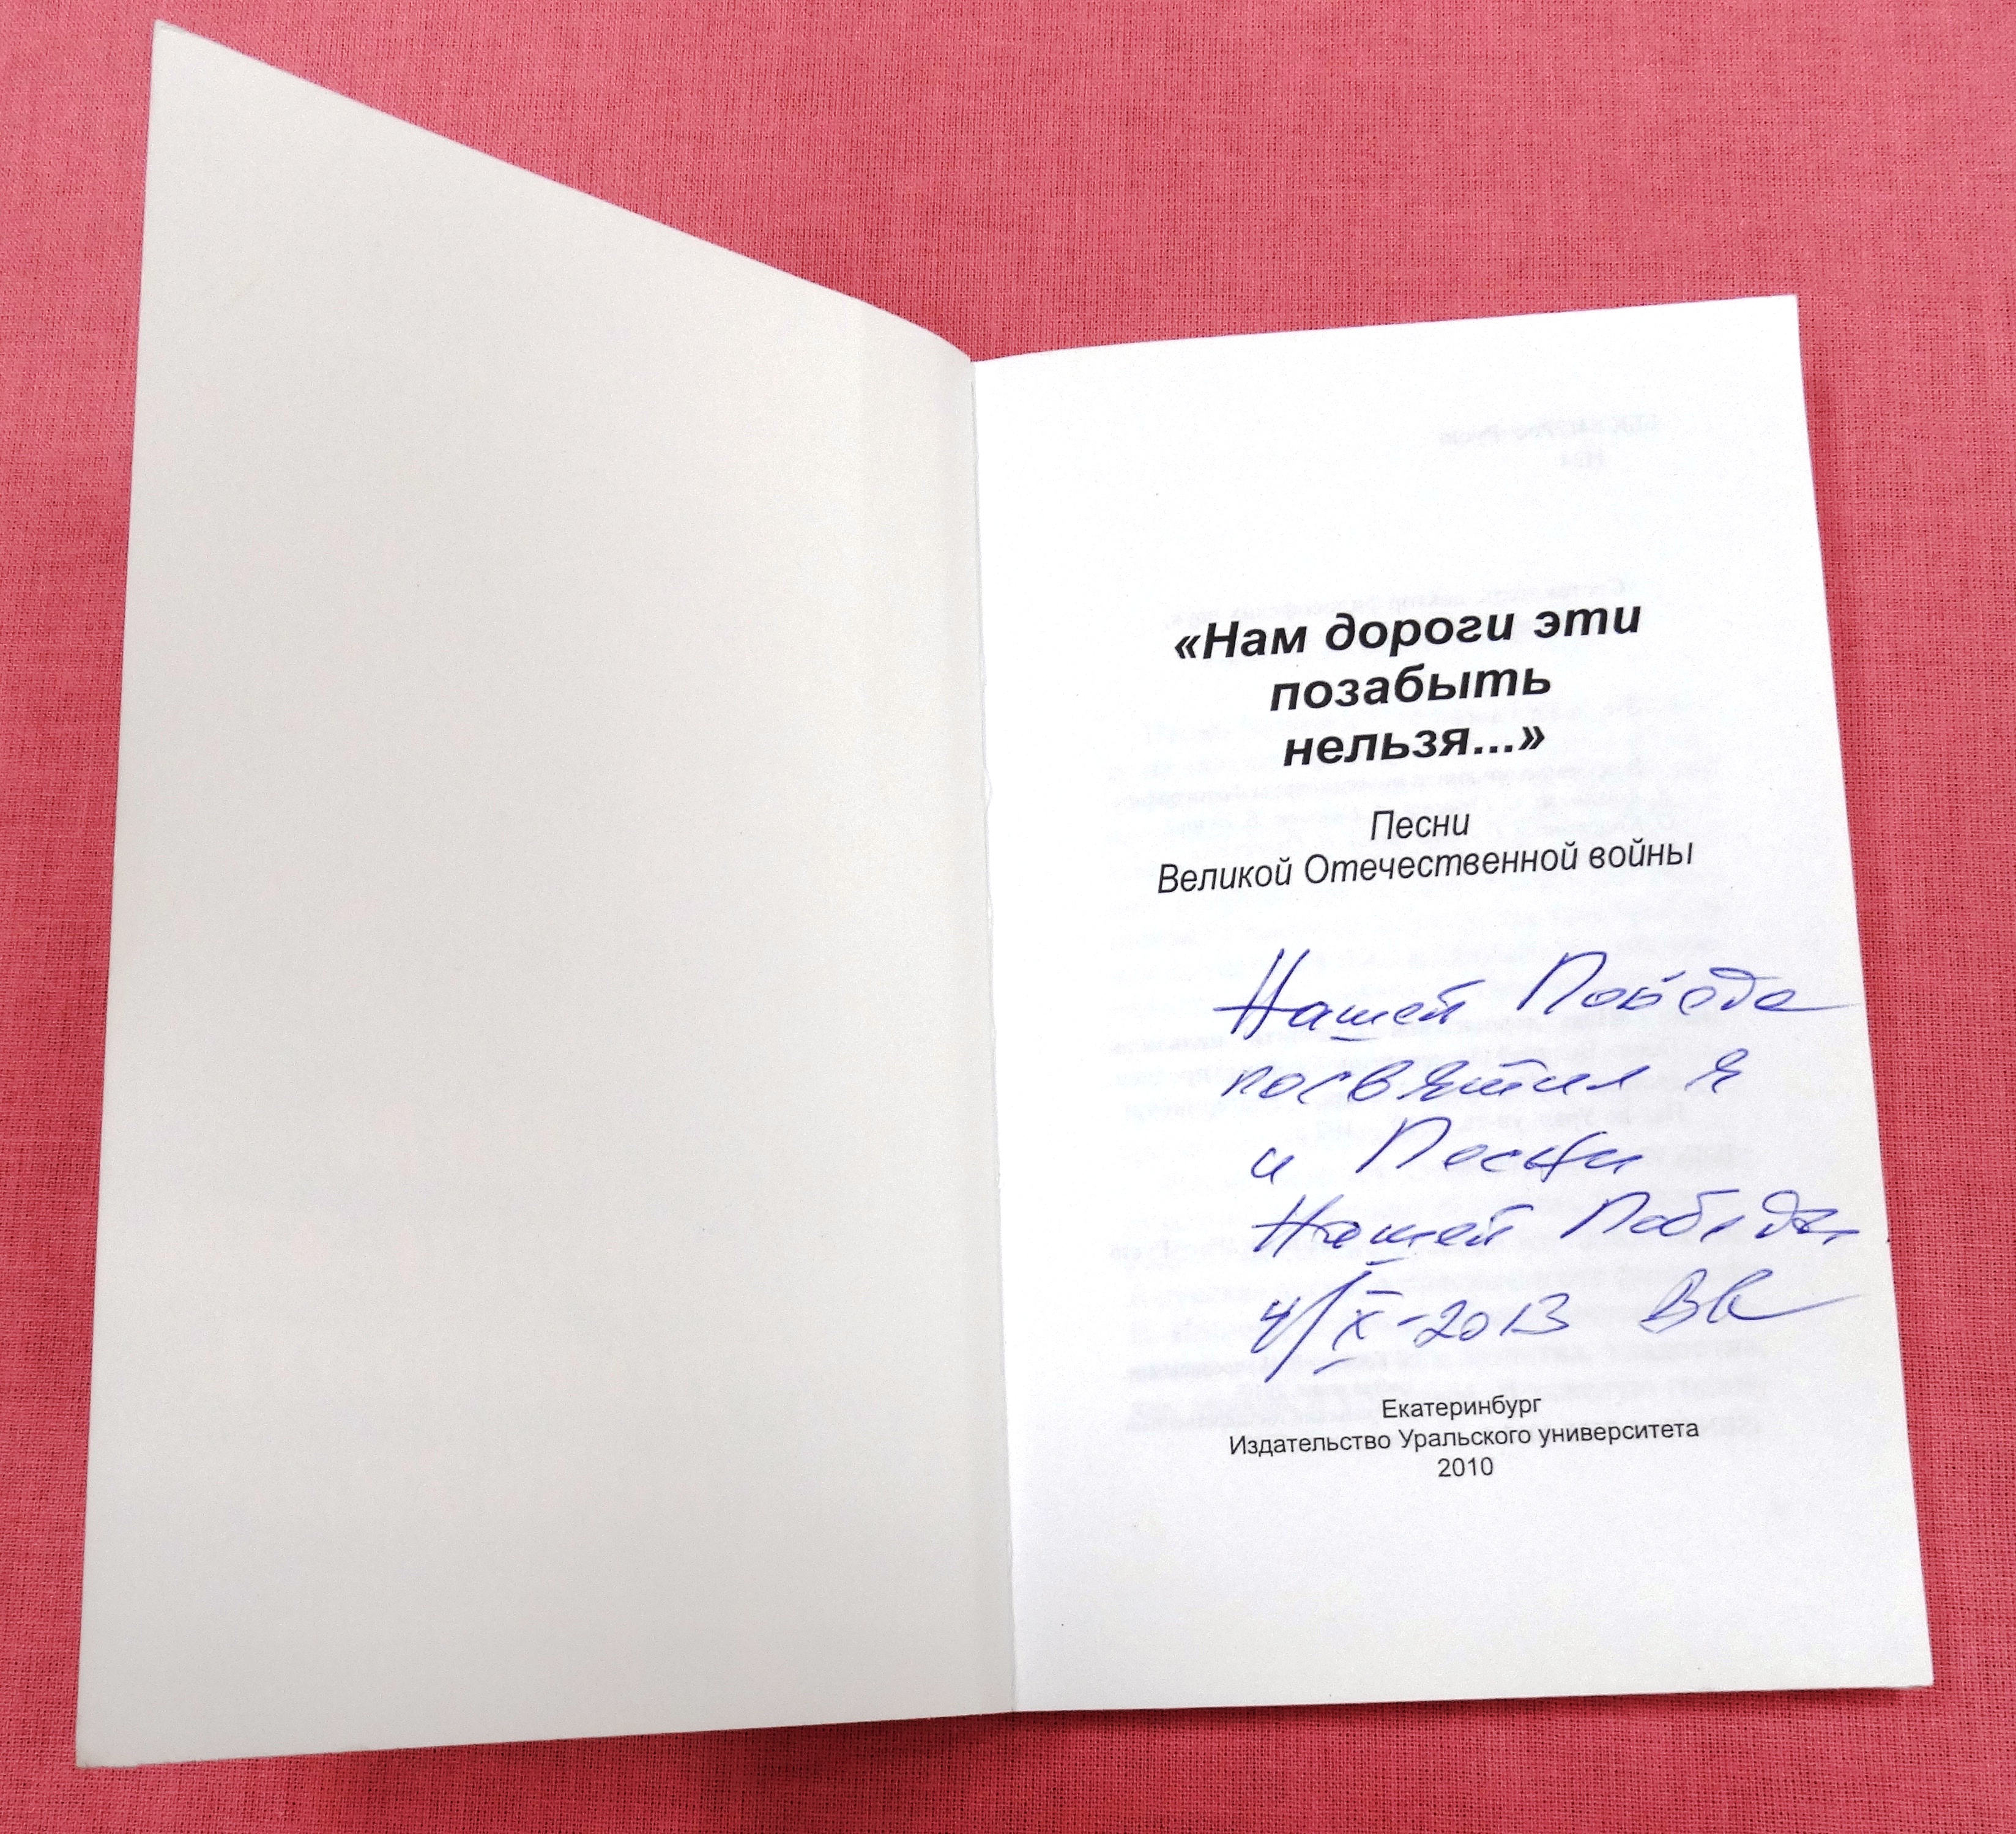 «Нам дороги эти
позабыть
нельзя...»
Песни
Великой Отечественной войны
Нашей Победе
посвятил я
и Песни
Нашей Победы
4/X-2013 ВК
Екатеринбург
Издательство Уральского университета
2010